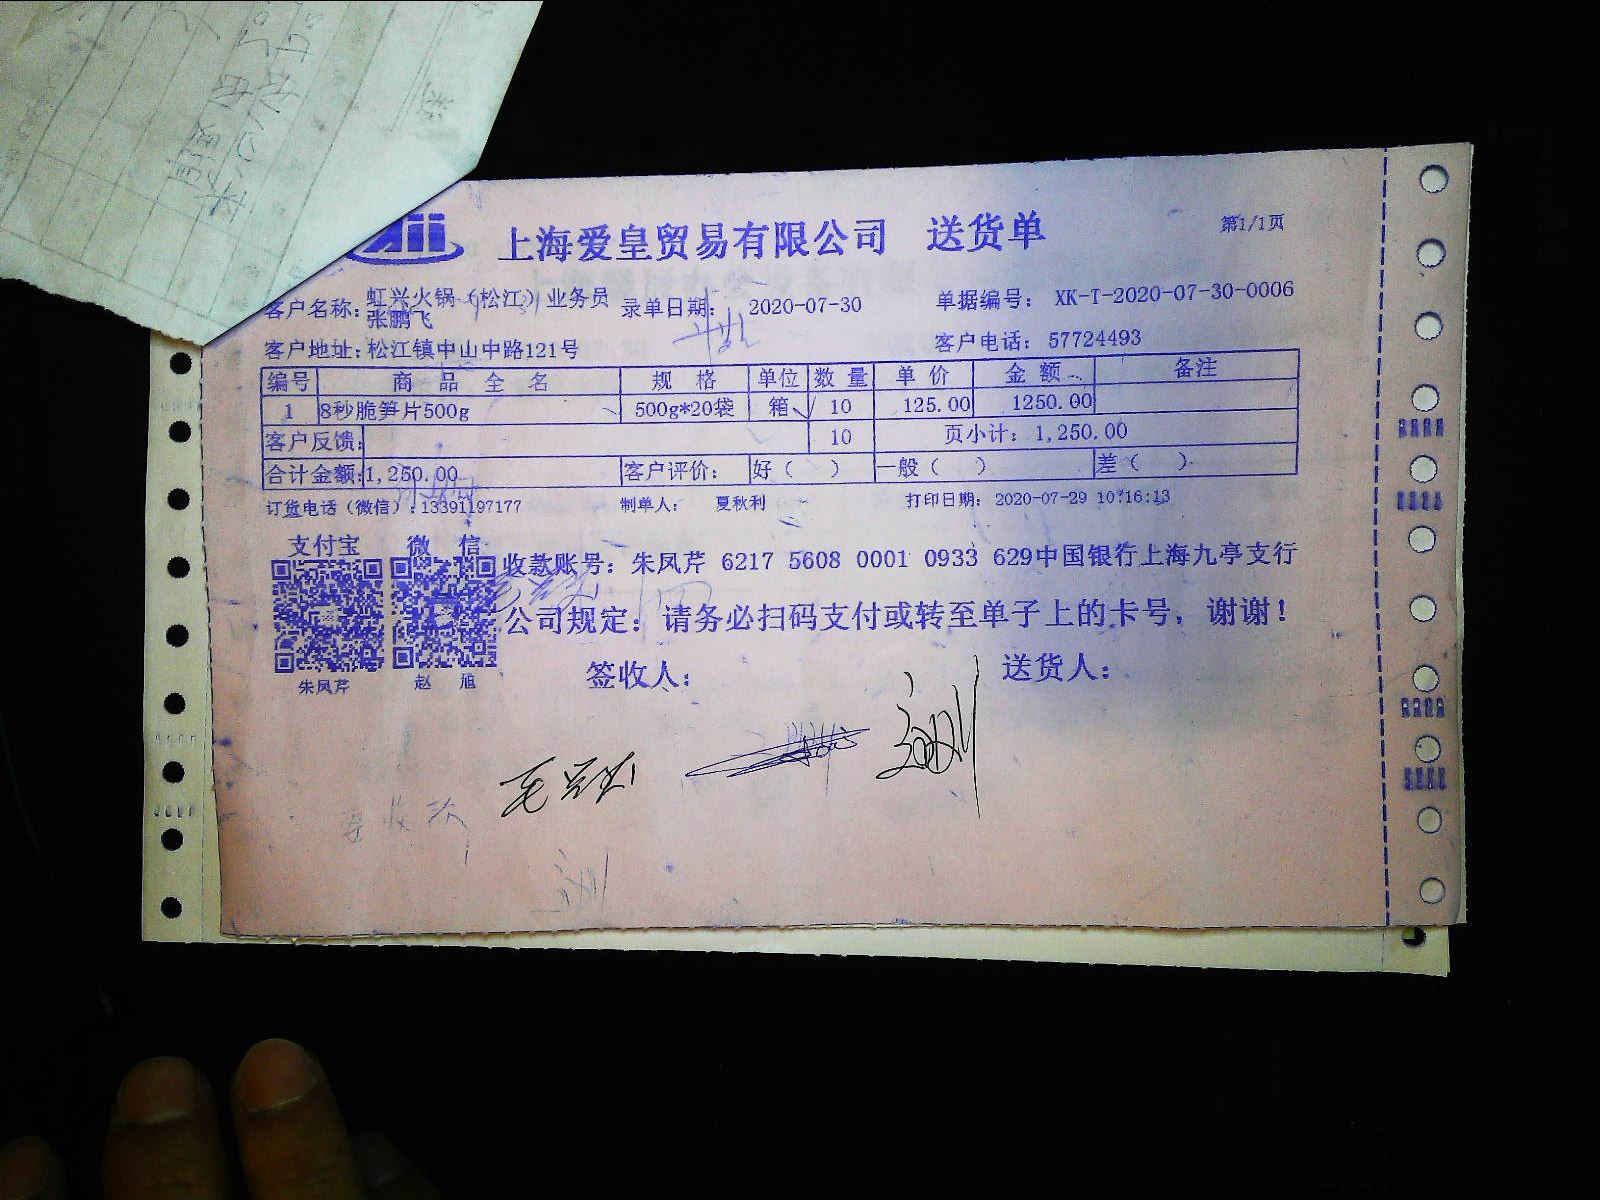 上海爱皇贸易有限公司 送货单
第1/1页
客户名称: 虹兴火锅（松江）业务员张鹏飞 录单日期: 2020-07-30 单据编号: XK-T-2020-07-30-0006
客户地址: 松江镇中山中路121号 客户电话: 57724493
编号 商品全名 规格 单位 数量 单价 金额 备注
1 8秒脆笋片500g 500g*20袋 箱 10 125.00 1250.00
客户反馈: 10 页小计: 1,250.00
合计金额: 1,250.00 客户评价: 好（ ） 一般（ ） 差（ ）
订货电话（微信）: 13391197177 制单人: 夏秋利 打印日期: 2020-07-29 10:16:13
支付宝 微信
收款账号: 朱凤芹 6217 5608 0001 0933 629中国银行上海九亭支行
公司规定: 请务必扫码支付或转至单子上的卡号, 谢谢!
签收人: 送货人:
朱凤芹 赵旭